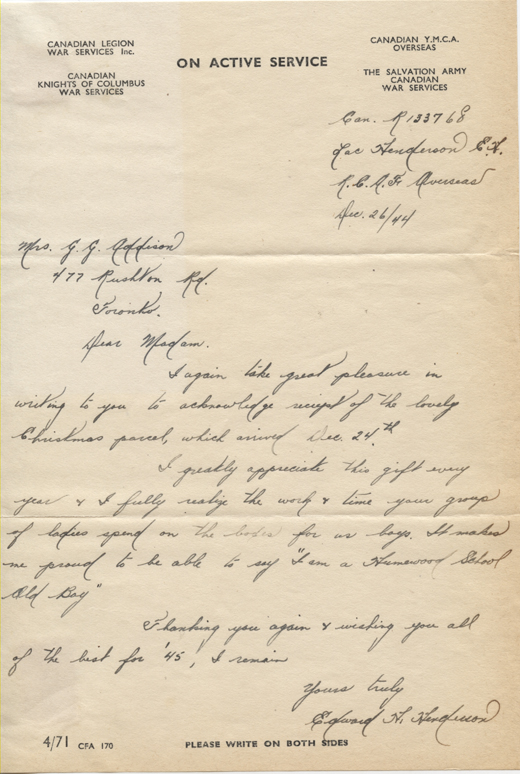 CANADIAN LEGION
WAR SERVICES Inc.
CANADIAN
KNIGHTS OF COLUMBUS
WAR SERVICES
ON ACTIVE SERVICE
CANADIAN Y.M.C.A.
OVERSEAS
THE SALVATION ARMY
CANADIAN
WAR SERVICES
Can. R 133768
Lac Henderson E.H.
R.C.A.F. Overseas
Dec. 26/44
Mrs. G. G. Addison
477 Rushton Rd.
Toronto.
Dear Madam.
I again take great pleasure in
writing to you to acknowledge reciept of the lovely
Christmas parcel, which arrived Dec. 24th
I greatly appreciate this gift every
year & I fully realize the work & time your group
of ladies spend on the boxes for us boys. It makes
me proud to be able to say "I am a Humewood School
Old Boy"
Thanking you again & wishing you all
of the best for '45, I remain
Yours truly
Edward H. Henderson
4/71 CFA 170
PLEASE WRITE ON BOTH SIDES